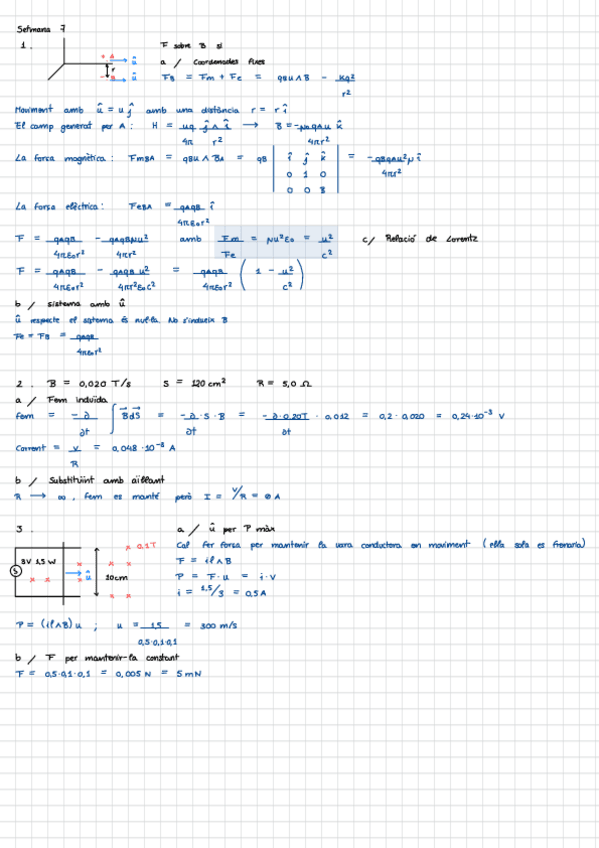 Setmana 7
1.
F sobre B si
a / Coordenades fixes
F_B = F_m + F_e = qBu ∧ B - Kq² / r²
Moviment amb û = u ĵ amb una distància r = r î
El camp generat per A : H = uq / 4π · ĵ ∧ î / r² → B = -μ₀qAu / 4πr² k̂
La força magnètica : FmBA = qBu ∧ BA = qB | î ĵ k̂ | 0 1 0 | 0 0 B | = -qBqAu²μ / 4πr² î
La força elèctrica : FeBA = qAqB / 4πε₀r² î
F = qAqB / 4πε₀r² - qAqBμu² / 4πr² amb Fm / Fe = μu²ε₀ = u² / c² c/ Relació de Lorentz
F = qAqB / 4πε₀r² - qAqB u² / 4πr²ε₀c² = qAqB / 4πε₀r² ( 1 - u² / c² )
b / sistema amb û
û respecte el sistema és nul·la. No s'indueix B
Fe = FB = qAqB / 4πε₀r²
2 . B = 0,020 T/s S = 120 cm² R = 5,0 Ω
a / Fem induïda
fem = -∂ / ∂t ∫ B dS = -∂ / ∂t · S · B = -∂ 0.20T / ∂t · 0,012 = 0,2 · 0,020 = 0,24·10⁻³ V
Corrent = V / R = 0,048·10⁻³ A
b / Substituint amb aïllant
R → ∞ , fem es manté però I = V/R = 0 A
3 .
a / û per P màx
x 0.1T
Cal fer força per mantenir la vara conductora en moviment (ella sola es frenaria)
3V 1,5 W
û
10cm
F = il ∧ B
P = F · u = i · V
i = 1,5/3 = 0,5 A
P = (il ∧ B) u ; u = 1,5 / 0,5·0,1·0,1 = 300 m/s
b / F per mantenir-la constant
F = 0,5·0,1·0,1 = 0,005 N = 5 mN